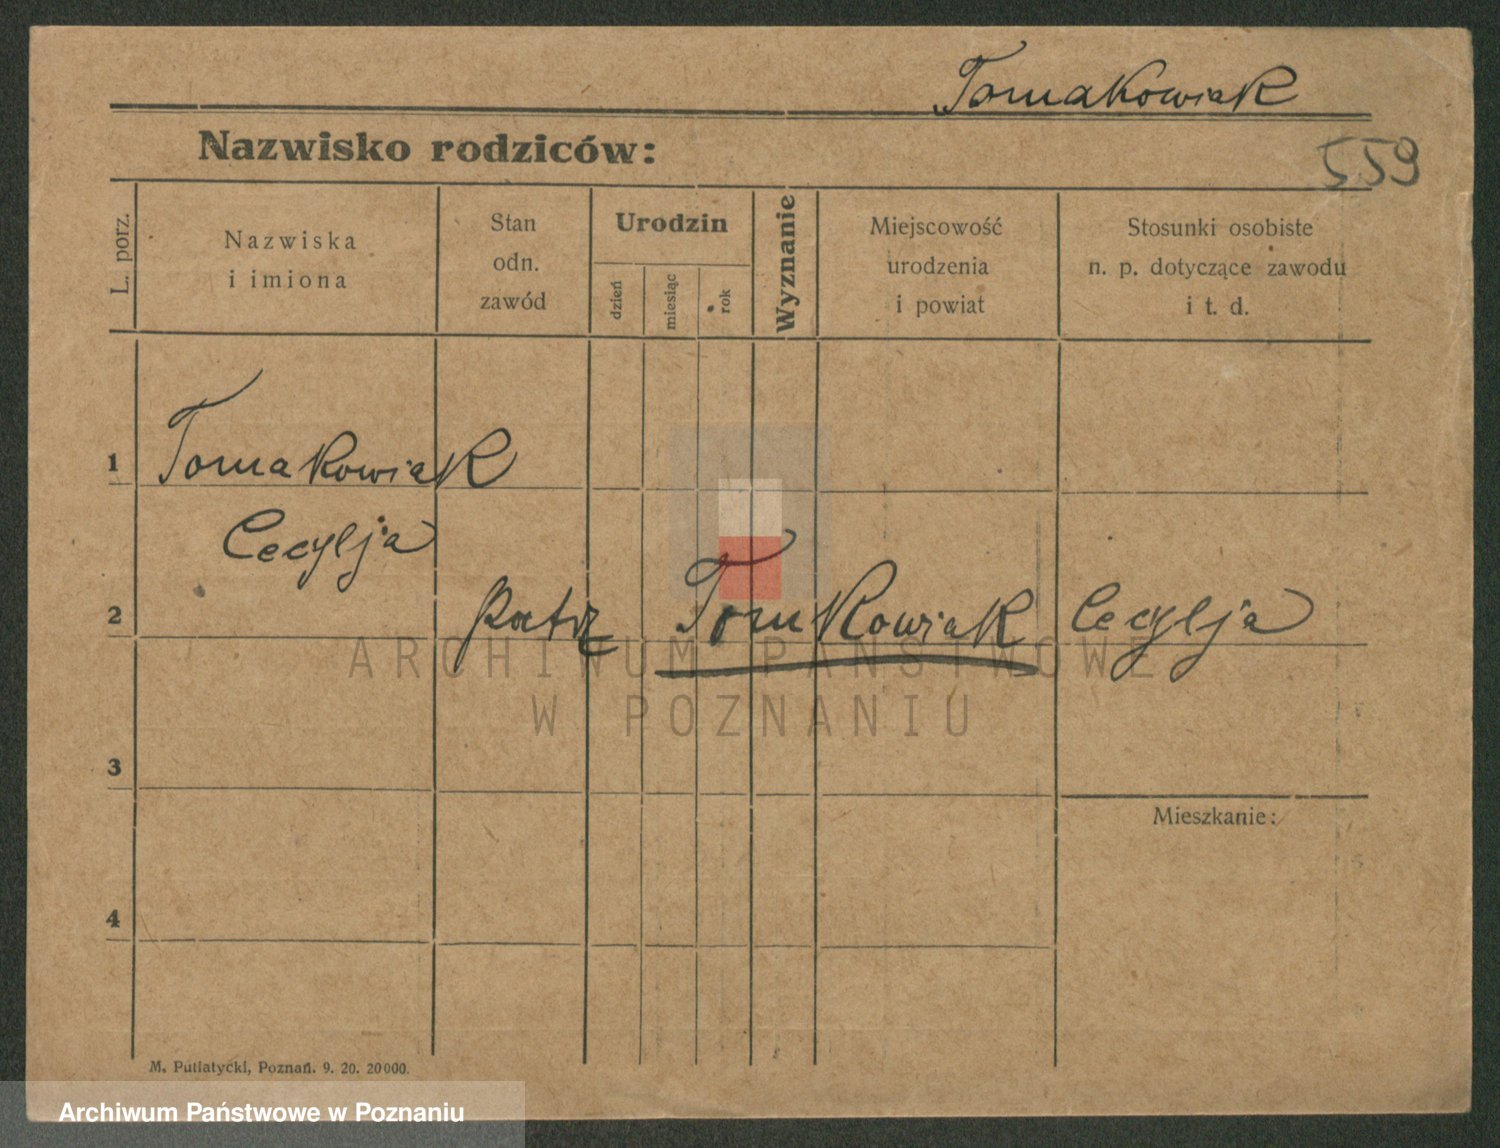 Tomakowiak
Nazwisko rodziców:
559
L. porz.
Nazwiska
i imiona
Stan
odn.
zawód
Urodzin
dzień
miesiąc
rok
Wyznanie
Miejscowość
urodzenia
i powiat
Stosunki osobiste
n. p. dotyczące zawodu
i t. d.
1
Tomakowiak
Cecylja
2
patrz Tomkowiak Cecylja
ARCHIWUM PAŃSTWOWE
W POZNANIU
3
Mieszkanie:
4
M. Putiatycki, Poznań. 9. 20. 20000.
Archiwum Państwowe w Poznaniu